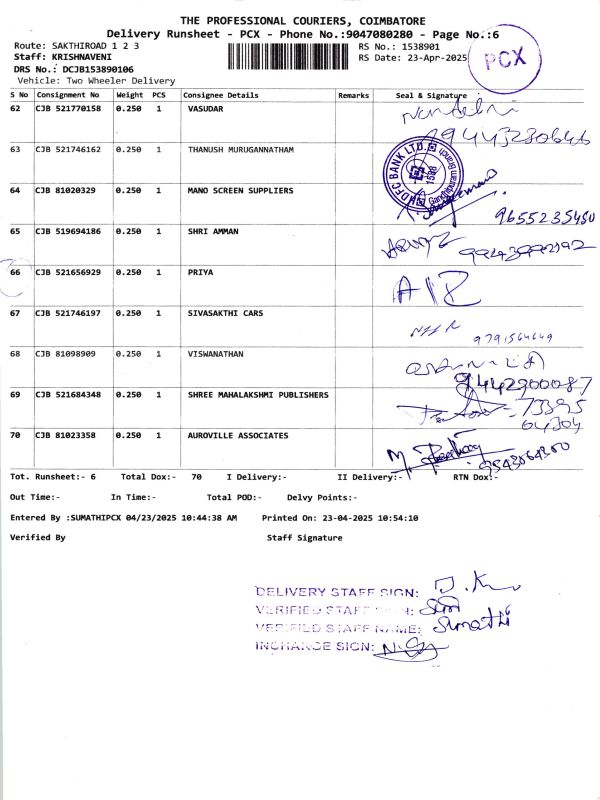 THE PROFESSIONAL COURIERS, COIMBATORE
Delivery Runsheet - PCX - Phone No.:9047080280 - Page No.:6
Route: SAKTHIROAD 1 2 3
RS No.: 1538901
Staff: KRISHNAVENI
RS Date: 23-Apr-2025
PCX
DRS No.: DCJB153890106
Vehicle: Two Wheeler Delivery
S No Consignment No Weight PCS Consignee Details Remarks Seal & Signature
62 CJB 521770158 0.250 1 VASUDAR
9443230646
63 CJB 521746162 0.250 1 THANUSH MURUGANNATHAM
HDFC BANK LTD. Gandhipuram Branch 1598
64 CJB 81020329 0.250 1 MANO SCREEN SUPPLIERS
9655235450
65 CJB 519694186 0.250 1 SHRI AMMAN
66 CJB 521656929 0.250 1 PRIYA
67 CJB 521746197 0.250 1 SIVASAKTHI CARS
9791564649
68 CJB 81098909 0.250 1 VISWANATHAN
9442900087
69 CJB 521684348 0.250 1 SHREE MAHALAKSHMI PUBLISHERS
73395
64304
70 CJB 81023358 0.250 1 AUROVILLE ASSOCIATES
9543064300
Tot. Runsheet:- 6 Total Dox:- 70 I Delivery:- II Delivery:- RTN Dox:-
Out Time:- In Time:- Total POD:- Delvy Points:-
Entered By :SUMATHIPCX 04/23/2025 10:44:38 AM Printed On: 23-04-2025 10:54:10
Verified By Staff Signature
DELIVERY STAFF SIGN:
VERIFIED STAFF SIGN:
VERIFIED STAFF NAME: Sumathi
INCHARGE SIGN: